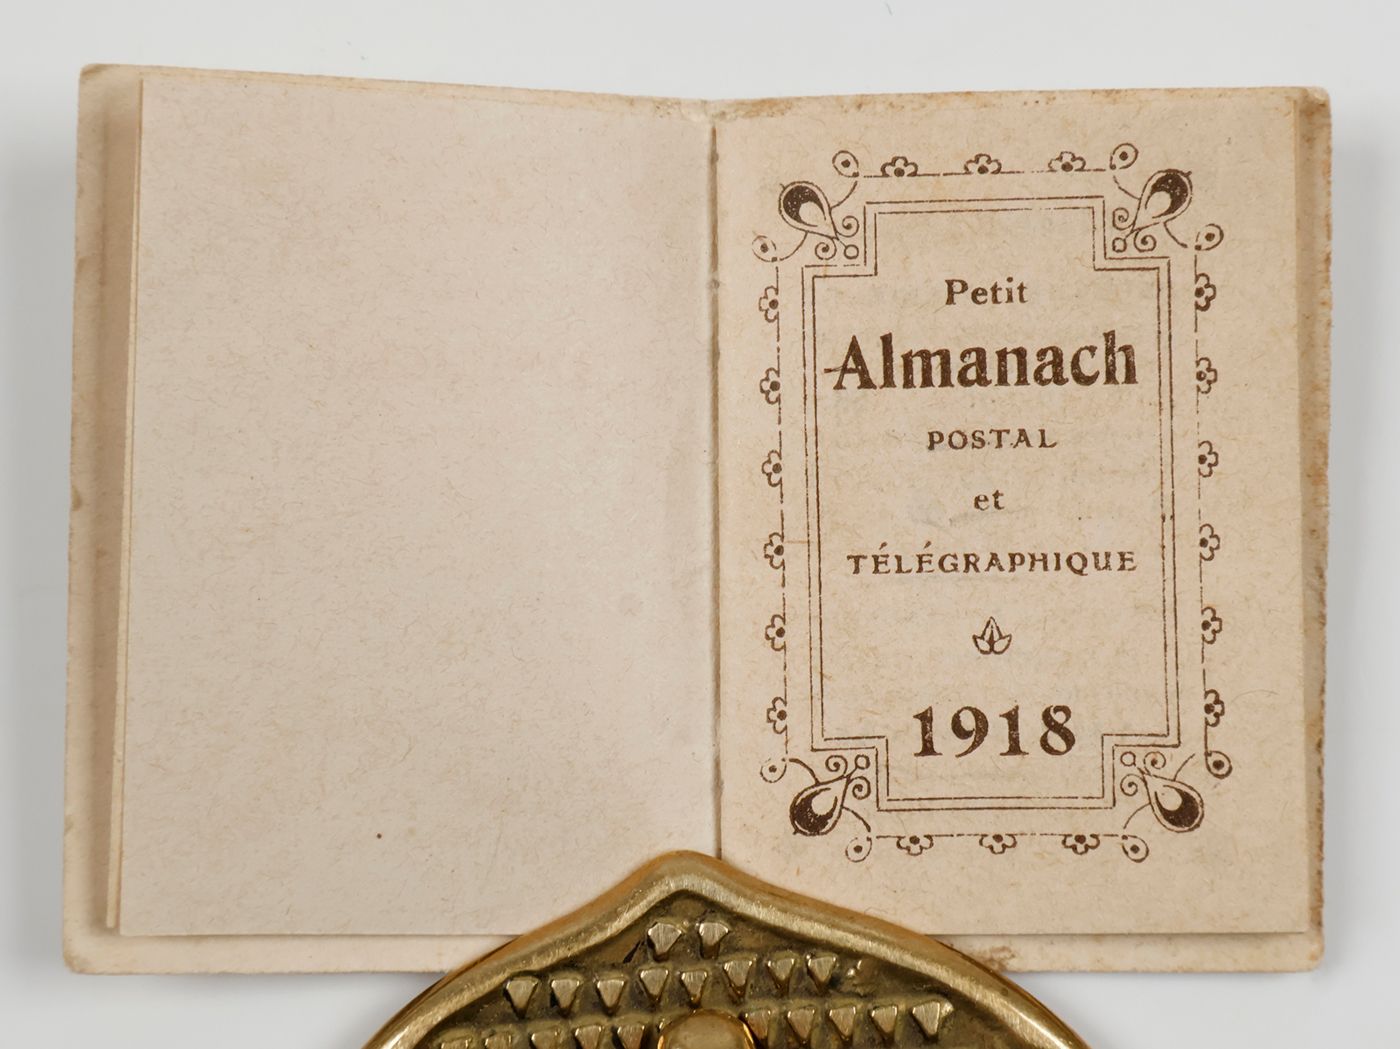 Petit
Almanach
POSTAL
et
TÉLÉGRAPHIQUE
1918